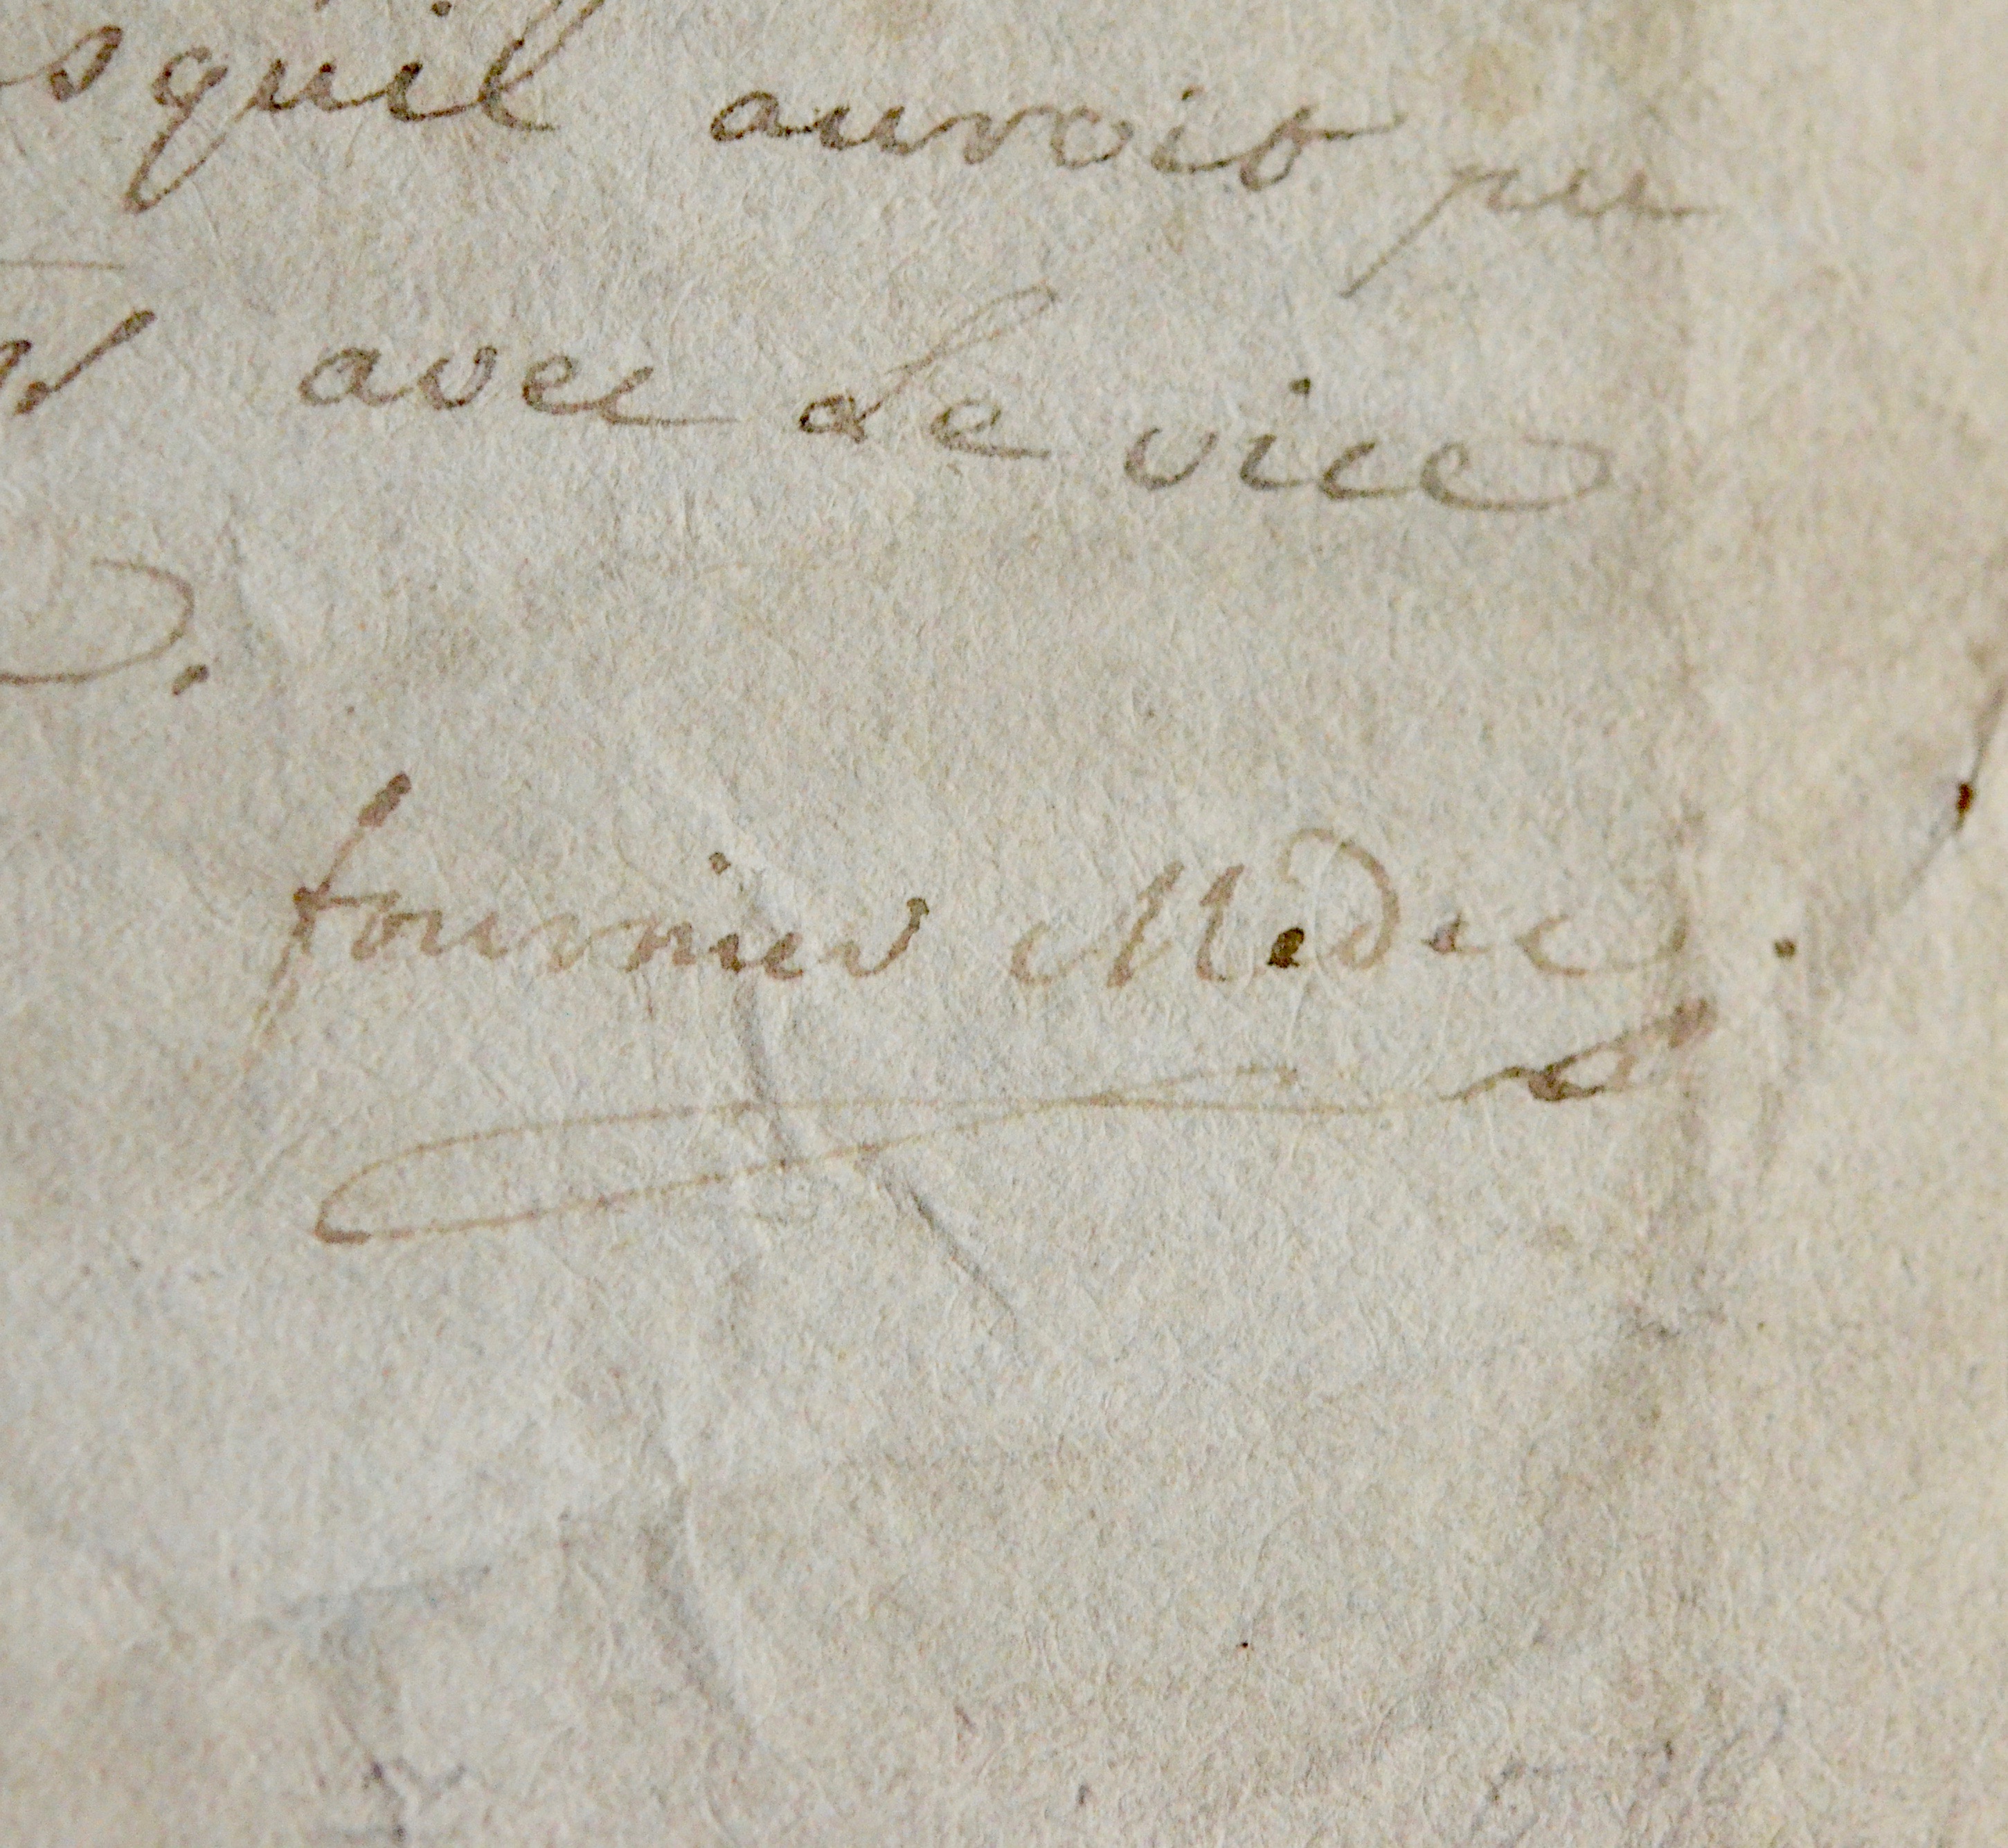 squil auroit pu
avec le vice
fournier Medec.